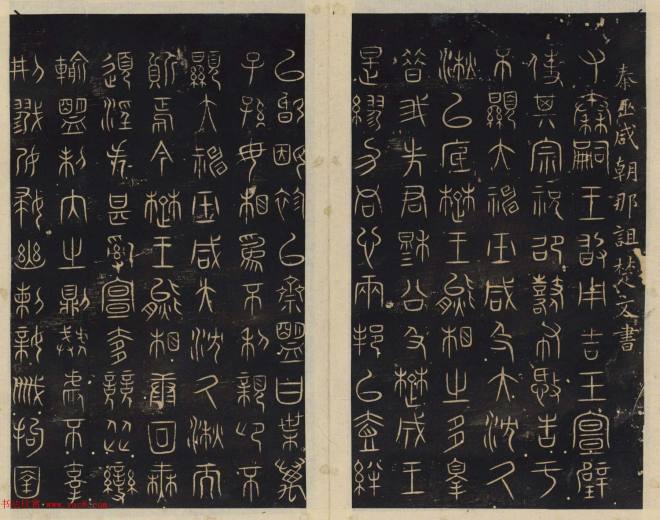 秦巫咸朝那詛楚文書
又秦嗣王敢用吉玉宣璧
使其宗祝邵鼛布憝告于
不顯大神巫咸及大沈久
湫以底楚王熊相之多辠
昔我先君穆公及楚成王
是繆力同心兩邦以壹絆
以婚姻袗以齋盟曰葉萬
子孫毋相為不利親卬不
顯大神巫咸大沈久湫而
質焉今楚王熊相康回無
道淫失甚亂宣奓競從變
輸盟制內之則暴虐不辜
刑戮孕婦幽刺親戚拘圉